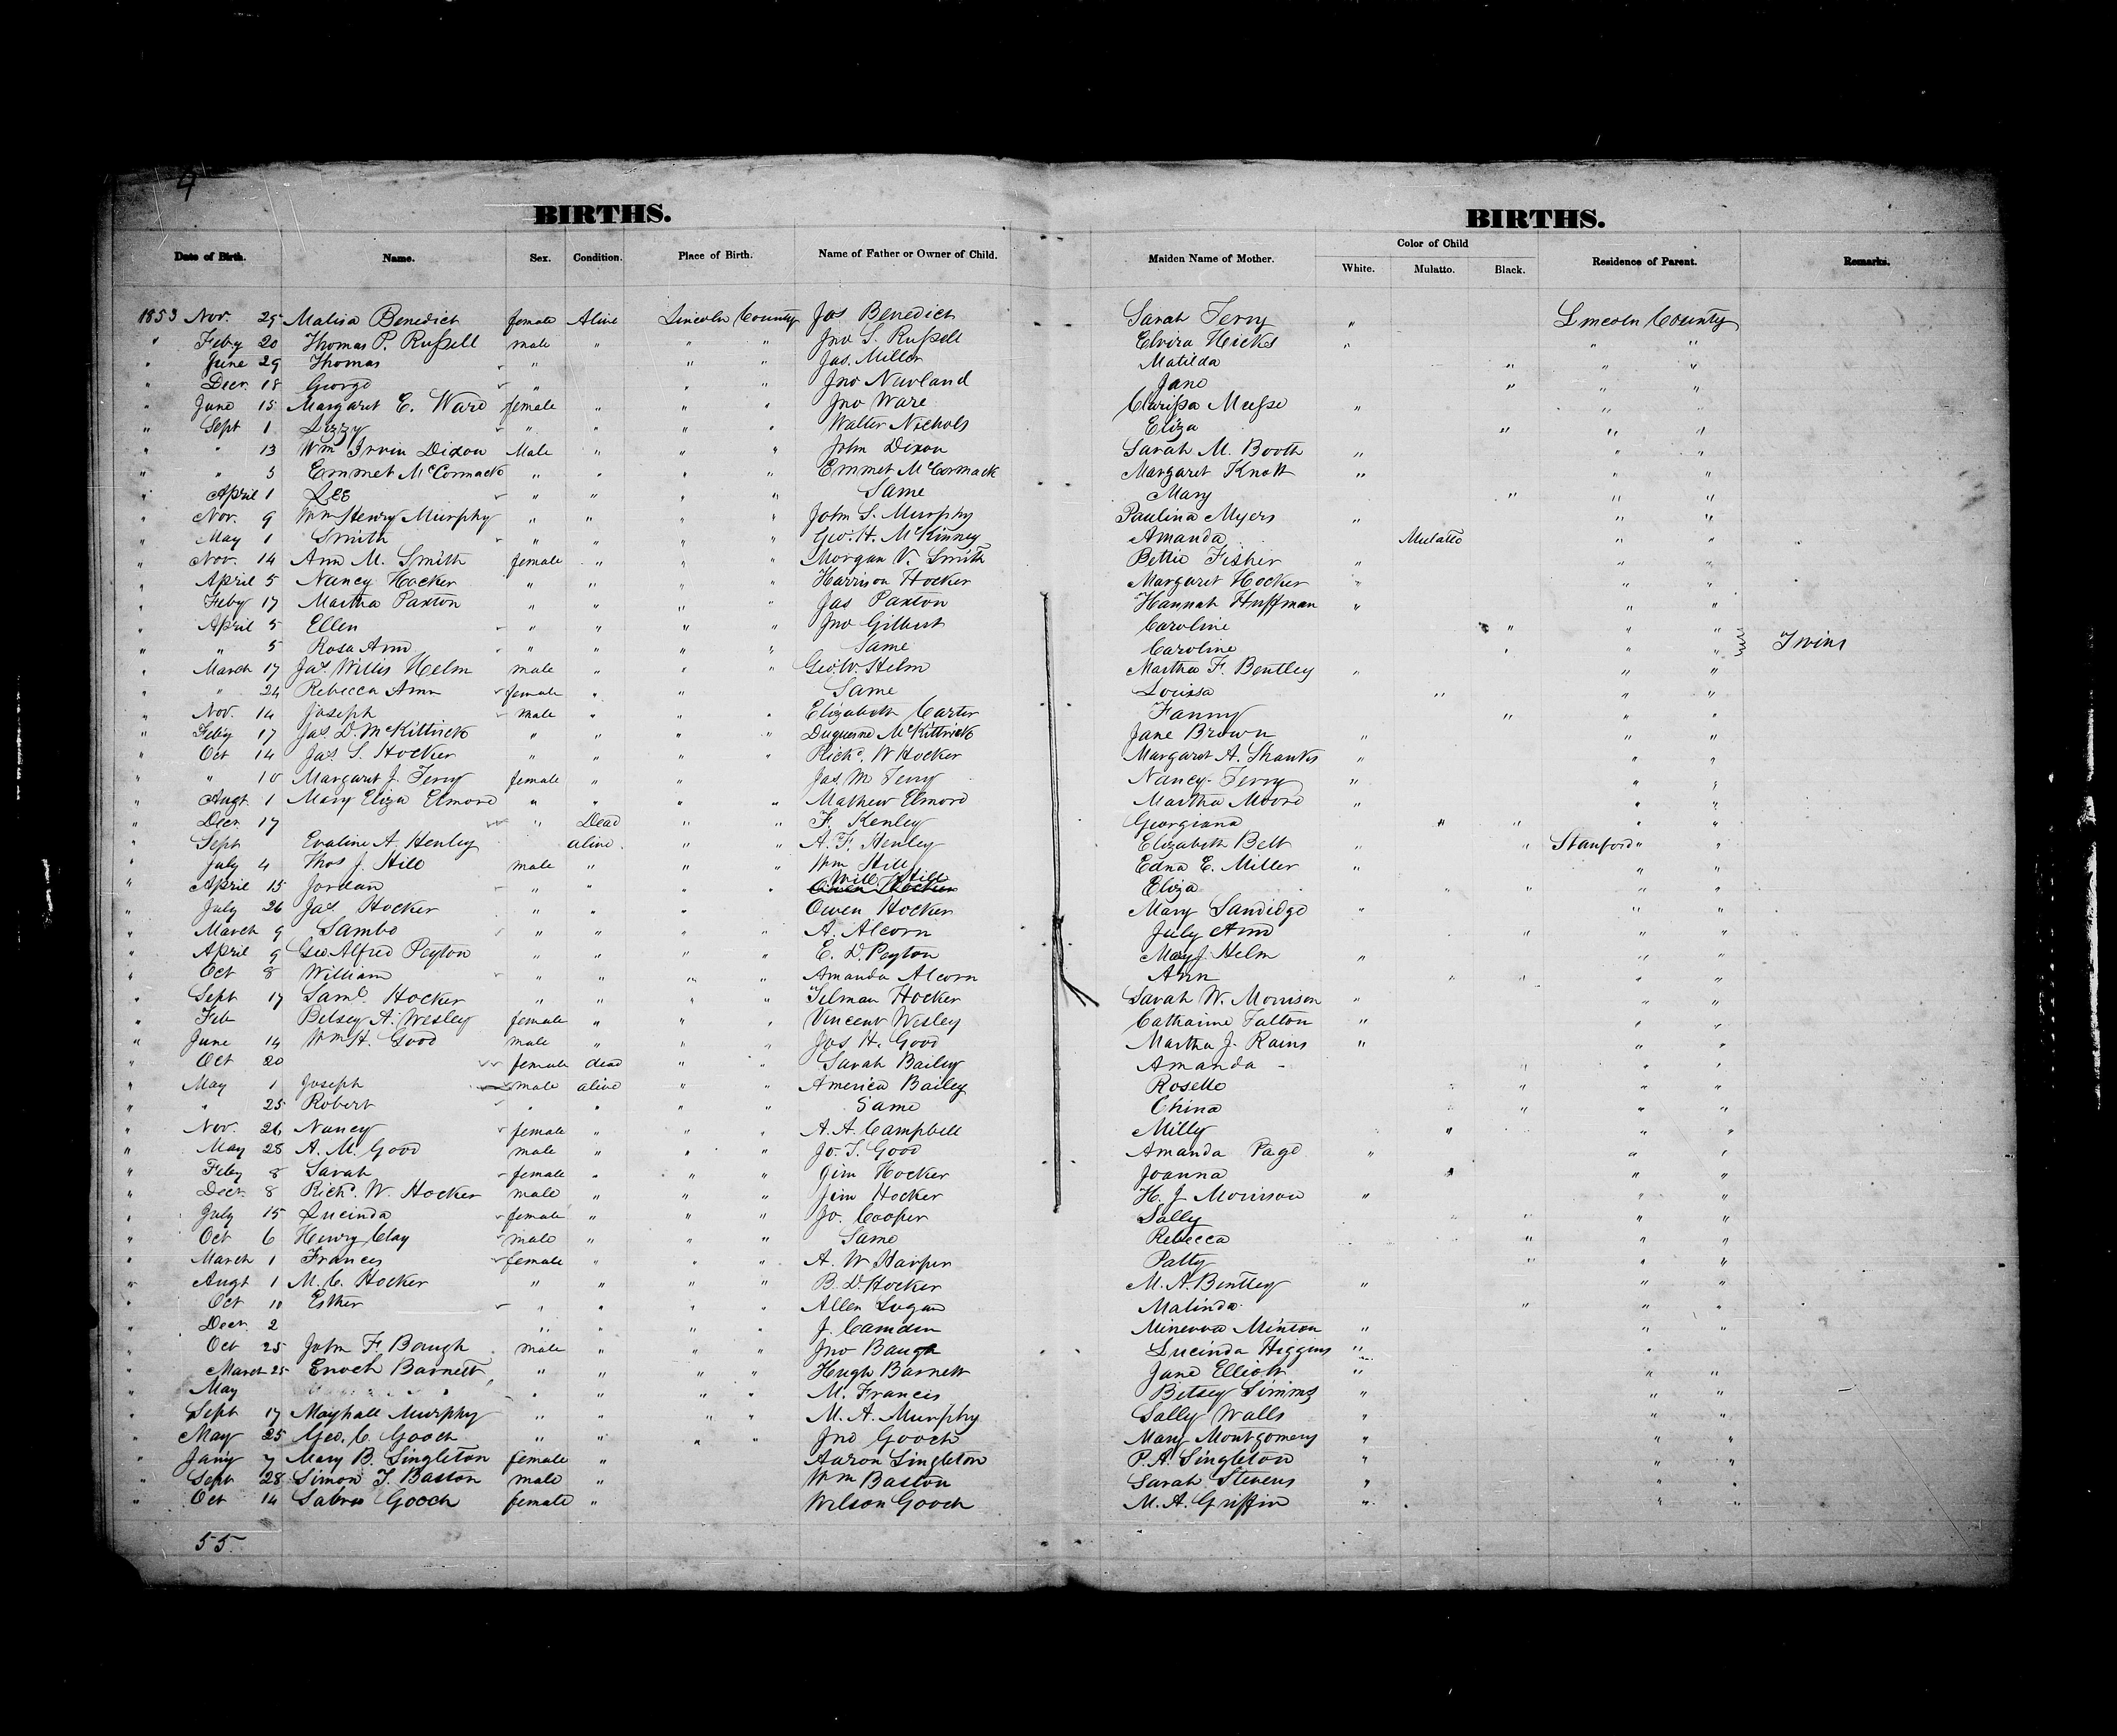 4
BIRTHS. BIRTHS.
Date of Birth. Name. Sex. Condition. Place of Birth. Name of Father or Owner of Child. Maiden Name of Mother. Color of Child White. Mulatto. Black. Residence of Parent. Remarks.
1853 Nov. 25 Malisa Benedict female Alive Lincoln County Jas Benedict Sarah Terry " Lincoln County
" Feby 20 Thomas P. Russell male " " " Jno S. Russell Elvira Hicks " " "
" June 29 Thomas " " " Jas. Miller Matilda " " "
" Decr. 18 George " " " Jno Newland Jane " " "
" June 15 Margaret E. Ware female " " " Jno Ware Clarissa " " "
" Sept 1 Lizzy " " " " Walter Nichols Eliza " " "
" " 13 Wm Irvin Dixon Male " " " John Dixon Sarah M. Booth " " "
" " 3 Emmet McCormack " " " " Emmet McCormack Margaret Knott " " "
" April 1 Lee " " " " Same Mary " " "
" Nov. 9 Wm Henry Murphy " " " " John S. Murphy Paulina Myers " " "
" May 1 Smith " " " " Geo. H. McKinney Amanda Mulatto " "
" Nov. 14 Ann M. Smith female " " " Morgan V. Smith Bettie Fisher " " "
" April 5 Nancy Hocker " " " " Harrison Hocker Margaret Hocker " " "
" Feby 17 Martha Paxton " " " " Jas Paxton Hannah Huffman " " "
" April 5 Ellen " " " " Jno Gilbert Caroline " " "
" " 5 Rosa Ann " " " " Same Caroline " " " Twins
" March 17 Jas. Willis Helm male " " " Geo. W. Helm Martha F. Bentley " " "
" " 24 Rebecca Ann female " " Same Louisa " " "
" Nov. 14 Joseph male " " " Elizabeth Carter Fanny " " "
" Feby 17 Jas. D. McKittrick " " " " Duquesne McKittrick Jane Brown " " "
" Oct 14 Jas. S. Hocker " " " " Richd. W Hocker Margaret A. Shanks " " "
" " 10 Margaret J. Terry female " " Jas M Terry Nancy Terry " " "
" Augt 1 Mary Eliza Elmore " " " " Mathew Elmore Martha Moore " " "
" Decr. 17 " Dead " " F. Kenley Georgiana " " " "
" Sept Evaline A. Henley alive " " A. F. Henley Elizabeth Belt " " Stanford " "
" July 4 Thos J. Hill male " " " Wm Hill Edna E. Miller " " "
" April 15 Jordan " " " " Will Hill Eliza " " " "
" July 26 Jas. Hocker " " " Owen Hocker Mary Sandidge " " "
" March 9 Sambo " " " " A. Alcorn July Ann " " "
" April 9 Geo Alfred Peyton " " " " E. D. Peyton Mary J. Helm " " "
" Oct 8 William " " " " Amanda Alcorn Ann " " " "
" Sept 17 Saml. Hocker " " " " Tilman Hocker Sarah W. Morrison " " "
" Feb Betsey A. Wesley female " " " Vincent Wesley Catharine Talton " " "
" June 14 Wm H. Good male " " " Jas H. Good Martha J. Rains " " "
" Oct 20 female dead " " Sarah Bailey Amanda " " "
" May 1 Joseph male alive " " America Bailey Rosette " " "
" " 25 Robert " " " " Same China " " "
" Nov. 26 Nancy female " " " A. A. Campbell Milly " " "
" May 28 A. M. Good male " " " Jo. T. Good Amanda Page " " "
" Feby 8 Sarah female " " " Jim Hocker Joanna " " "
" Decr. 8 Richd. W. Hocker male " " " Jim Hocker H. J. Morrison " " "
" July 15 Lucinda female " " " Jo. Cooper Sally " " " "
" Oct 6 Henry Clay male " " " Same Rebecca " " "
" March 1 Frances female " " " A. W Harper Patty " " "
" Augt 1 M. C. Hocker " " " " B. D. Hocker M. A. Bentley " " "
" Oct 10 Esther " " " " Allen Logan Malinda " " "
" Decr. 2 " " " " J. Camden Minerva Minton " " "
" Oct 25 John F. Baugh male " " " Jno Baugh Lucinda Higgins " "
" March 25 Enoch Barnett " " " " Hugh Barnett Jane Elliott " " "
" May " " " " M. Francis Betsey Simms " " "
" Sept 17 Mayhall Murphy " " " " M. A. Murphy Sally Walls " " "
" May 25 Geo. C. Gooch " " " " Jno Gooch Mary Montgomery " " "
" Jan'y 7 Mary B. Singleton female " Aaron Singleton P. A. Singleton " " "
" Sept 28 Simon T. Baston male " Wm Baston Sarah Stevens " " "
" Oct 14 Gooch female " Wilson Gooch M. A. Griffin " " "
55